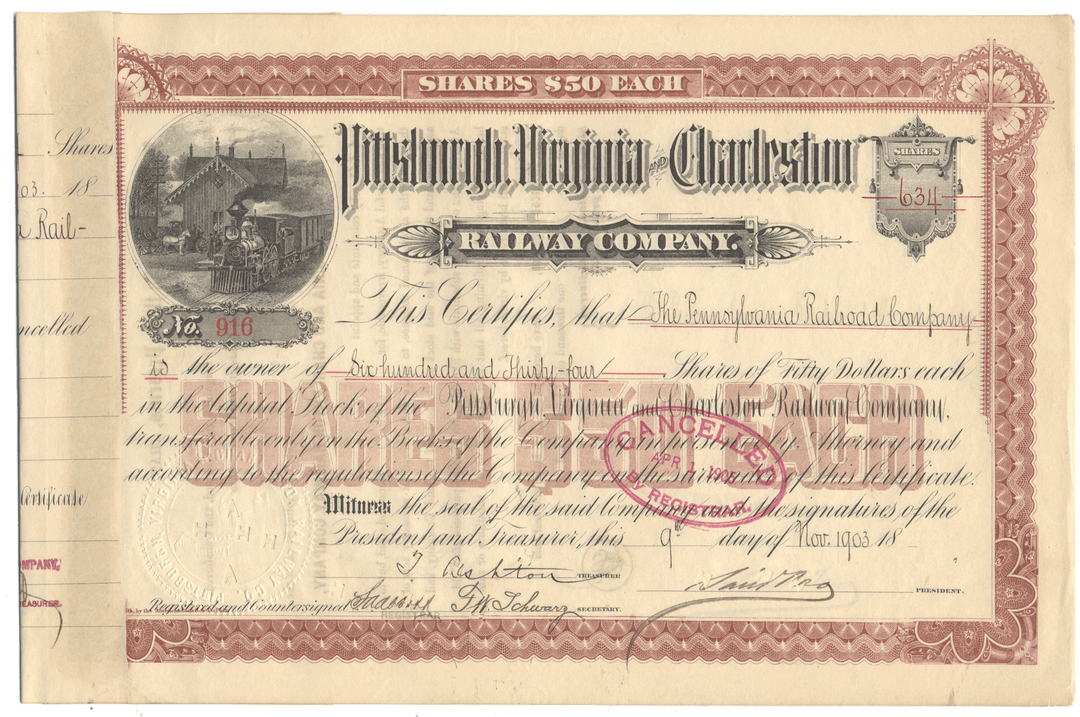 SHARES $50 EACH
Shares
03. 18
a Rail-
ncelled
Certificate
MPANY,
EASURER.
Pittsburgh, Virginia AND Charleston
RAILWAY COMPANY.
SHARES
634
No. 916
This Certifies, that The Pennsylvania Railroad Company
is the owner of Six hundred and Thirty-four Shares of Fifty Dollars each
in the Capital Stock of the Pittsburgh, Virginia and Charleston Railway Company,
transferable only in the Books of the Company in person or by Attorney and
according to the regulations of the Company on the surrender of this Certificate.
SHARES $50 EACH
CANCELLED
APR 1 1905
BY REGISTRAR.
Witness the seal of the said Company and the signatures of the
President and Treasurer, this 9th day of Nov. 1903 18
TREASURER
PRESIDENT.
Registered and Countersigned
REGISTRAR
F.W. Schwarz SECRETARY.